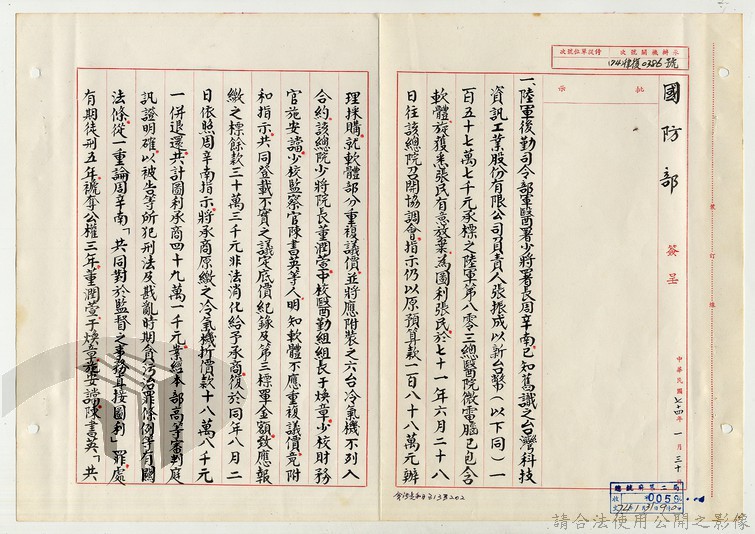 承辦機關號次
待設單位號次
(74)律復0386號
國防部
簽呈
批
示
中華民國七十四年一月三十日
裝訂線
一、陸軍後勤司令部軍醫署少將署長周辛南，已知舊識之台灣科技
資訊工業股份有限公司負責人張振成以新台幣（以下同）一
百五十七萬七千元承標之陸軍第八零三總醫院微電腦已包含
軟體，旋獲悉張民有意放棄，為圖利張民，於七十一年六月二十八
日往該總院召開協調會，指示仍以原預算款一百八十八萬元辦
總統府第二局
0058
理採購，就軟體部分重複議價，並將應附裝之六台冷氣機不列入
合約，該總院少將院長董潤萱、中校醫勤組組長于煥章、少校財務
官施安諡、少校監察官陳書英等人，明知軟體不應重複議價，竟附
和指示，共同登載不實之議定底價紀錄及第三標單金額，致應報
繳之標餘款三十萬三千元非法消化給予承商，復於同年八月二
日依照周辛南指示，將承商原繳之冷氣機折價款十八萬八千元
一併退還，共計圖利承商四十九萬一千元，業經本部高等審判庭
訊證明確，以被告等所犯刑法及戡亂時期貪污治罪條例等有關
法條，從一重論周辛南「共同對於監督之事務直接圖利」罪，處
有期徒刑五年，褫奪公權三年，董潤萱、于煥章、施安諡、陳書英「共
請合法使用公開之影像